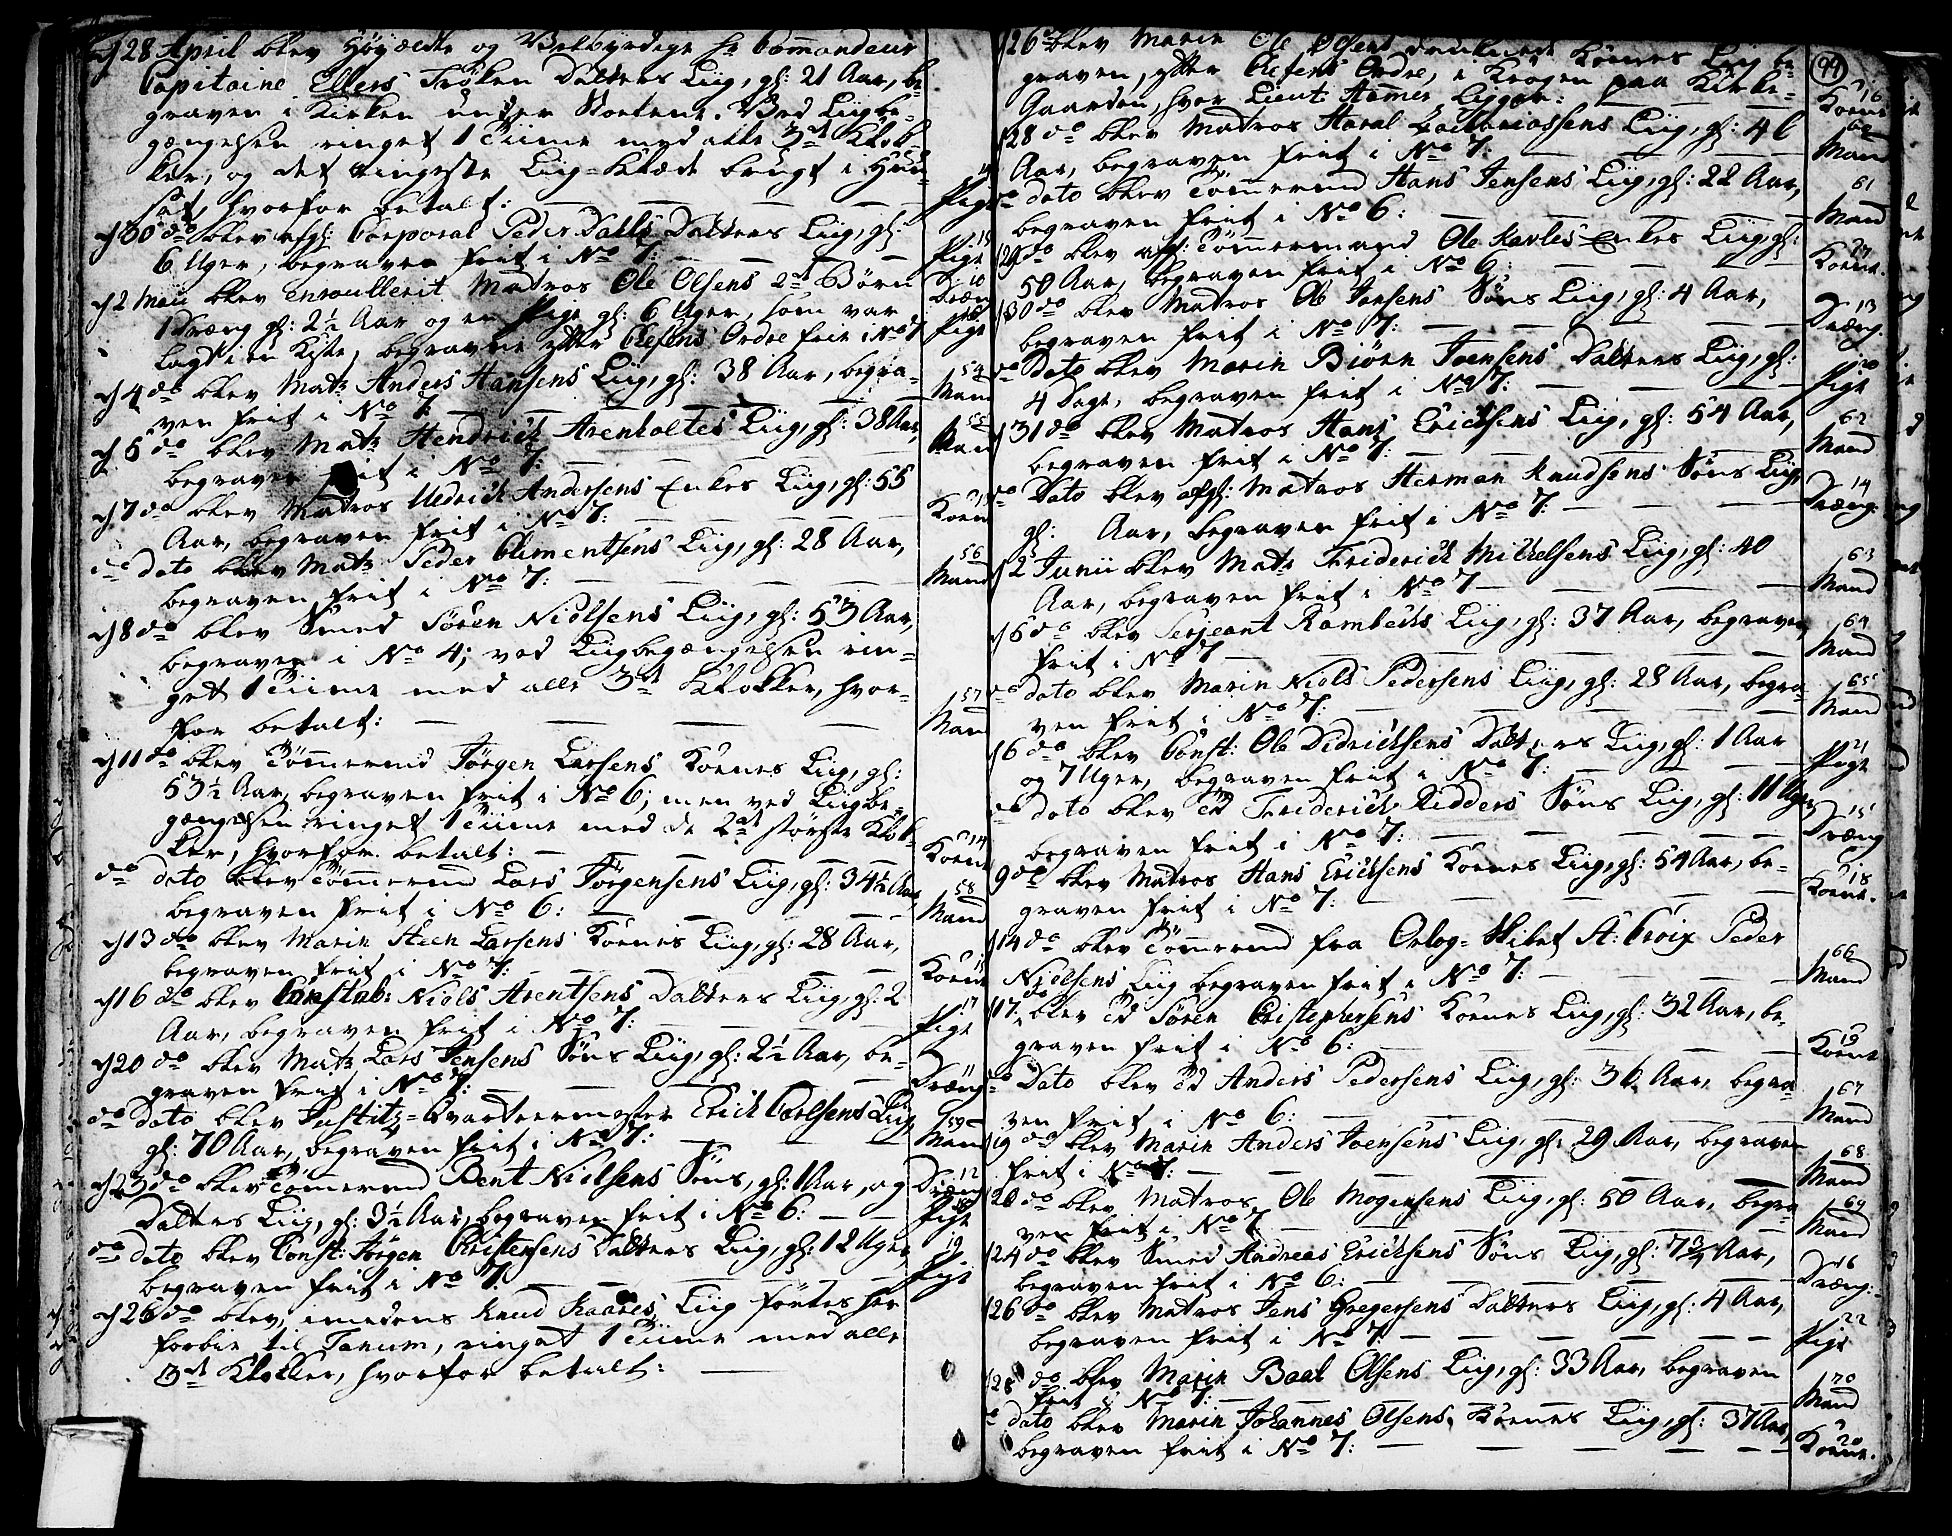 d 28 April blev Høyædle og Velbyrdige Hr Commandeur
Capitaine Ellers Frøken Datters Liig, gl: 21 Aar, be-
graven i Kirken under Stolene. Ved Liigbe-
gængelsen ringet 1 Tiime med alle 3de Klok-
ker, og det ringeste Liig-Klæde brugt i Huu-
set, hvorfor betalt: Pige
d 30 do blev afgl: Corporal Peder Dalls Datters Liig, gl:
6 Uger, begraven frit i No 7: Pige 15
d 2 Maii blev enroullerit Matros Ole Olsens 2de Børn
1 Dræng gl: 2½ Aar og en Pige gl: 6 Uger, som var
lagt i en Kiste, begravne efter Chefens Ordre frie i No 7 Pige
d 4 do blev Matr Anders Hansens Liig, gl: 38 Aar, begra-
ven frit i No 7: 54 Mand
d 5 do blev Matr Hendrich Arenholtes Liig, gl: 38 Aar,
begraven frit i No 7: 55 Mand
d 7 do blev Matros Uldrich Andersens Enkes Liig, gl: 55
Aar, begraven frit i No 7: Koene
do dato blev Matr Peder Clementsens Liig, gl: 28 Aar,
begraven frit i No 7: 56 Mand
d 8 do blev Smed Søren Nielsens Liig, gl: 53 Aar,
begraven i No 4; ved Liigbegængelsen rin-
get 1 Tiime med alle 3de Klokker, hvor-
for betalt: 57 Mand
d 11 do blev Tømmermd Jørgen Larsens Koenes Liig, gl:
53½ Aar, begraven frit i No 6; men ved Liigbe-
gængelsen ringet 1 Tiime med de 2de største Klok-
ker, hvorfor betalt: 14 Koene
do dato blev Tømmermd Lars Jørgensens Liig, gl: 34½ Aar
begraven frit i No 6: 58 Mand
d 13 do blev Marin Steen Larsens Koenes Liig, gl: 28 Aar,
begraven frit i No 7: Koene
d 16 do blev Constab: Niels Arentsens Datters Liig, gl: 2
Aar, begraven frit i No 7: 17 Pige
d 20 do blev Matr Lars Jensens Søns Liig, gl: 2½ Aar, be-
graven frit i No 7: Dræng
do Dato blev Justitz-Qvarteermester Erich Carlsens Liig
gl: 70 Aar, begraven frit i No 7: 59 Mand
d 23 do blev Tømmermd Bent Nielsens Søns, gl: 1 Aar, og 12 Dræng
Datters Liig, gl: 3½ Aar, begraven frit i No 6: Pige
do dato blev Const: Jørgen Christensens Datters Liig, gl: 12 Uger,
begraven frit i No 7: 19 Pige
d 26 do blev, imedens Knud Kaares Liig førtes her
forbie til Tanum, ringet 1 Tiime med alle
3de Klokker, hvorfor betalt:
99
d 26 do blev Marin Ole Olsens druknede Koenes Liig be-
graven, efter Chefens Ordre, i Krogen paa Kirke-
Gaarden, hvor Lieut: Hammer Ligger: 16 Koene
d 28 do blev Matros Haral Zachariassens Liig, gl: 46
Aar, begraven frit i No 7: 60 Mand
do dato blev Tømmermd Hans Jensens Liig, gl: 22 Aar,
begraven frit i No 6: 61 Mand
d 29 do blev afgl: Tømmermand Ole Karles Enkes Liig, gl:
50 Aar, begraven frit i No 6: Koene.
d 30 do blev Matros Ole Jensens Søns Liig, gl: 4 Aar,
begraven frit i No 7: 13 Dræng.
do Dato blev Marin Biørn Joensens Datters Liig, gl:
4 Dage, begraven frit i No 7: 20 Pige
d 31 do blev Matros Hans Erichsens Liig, gl: 54 Aar,
begraven frit i No 7: 62 Mand
do Dato blev afgl: Matros Herman Knudsens Søns Liig,
gl: Aar, begraven frit i No 7: 14 Dræng.
d 2 Junii blev Matr Friderich Michelsens Liig, gl: 40
Aar, begraven frit i No 7 63 Mand
d 6 do blev Serjeant Rambechs Liig, gl: 37 Aar, begraven
frit i No 7 64 Mand
do dato blev Marin Niels Pedersens Liig, gl: 28 Aar, begra-
ven frit i No 7: 65 Mand
d 6 do blev Const: Ole Didrichsens Datters Liig, gl: 1 Aar
og 7 Uger, begraven frit i No 7: 21 Pige
do dato blev Td Friderich Ridders Søns Liig, gl: 11 Uger,
begraven frit i No 7: 15 Dræng
9 do blev Matros Hans Erichsens Koenes Liig, gl: 54 Aar, be-
graven frit i No 7: 18 Koene.
d 14 do blev Tømmermd fra Orlog-Skibet St: Croix Peder
Nielsens Liig begraven frit i No 7: 66 Mand
d 17 do blev Td Søren Christophersens Koenes Liig, gl: 32 Aar, be-
graven frit i No 6: 19 Koene
do Dato blev Td Anders Pedersens Liig, gl: 36 Aar, begra-
ven frit i No 6: 67 Mand
d 19 do blev Marin Anders Joensens Liig, gl: 29 Aar, begraven
frit i No 7: 68 Mand
d 20 do blev Matros Ole Mogensens Liig, gl: 50 Aar, begra-
ven frit i No 7 69 Mand
d 24 do blev Smed Andreas Erichsens Søns Liig, gl: 7¾ Aar,
begraven frit i No 6: 16 Dræng.
d 26 do blev Matros Jens Gregersens Datters Liig, gl: 4 Aar,
begraven frit i No 7: 22 Pige
d 28 do blev Marin Baal Olsens Liig, gl: 33 Aar, begraven
frit i No 7: 70 Mand
do dato blev Marin Johannes Olsens Koenes Liig, gl: 37 Aar,
begraven frit i No 7: 20 Koene.